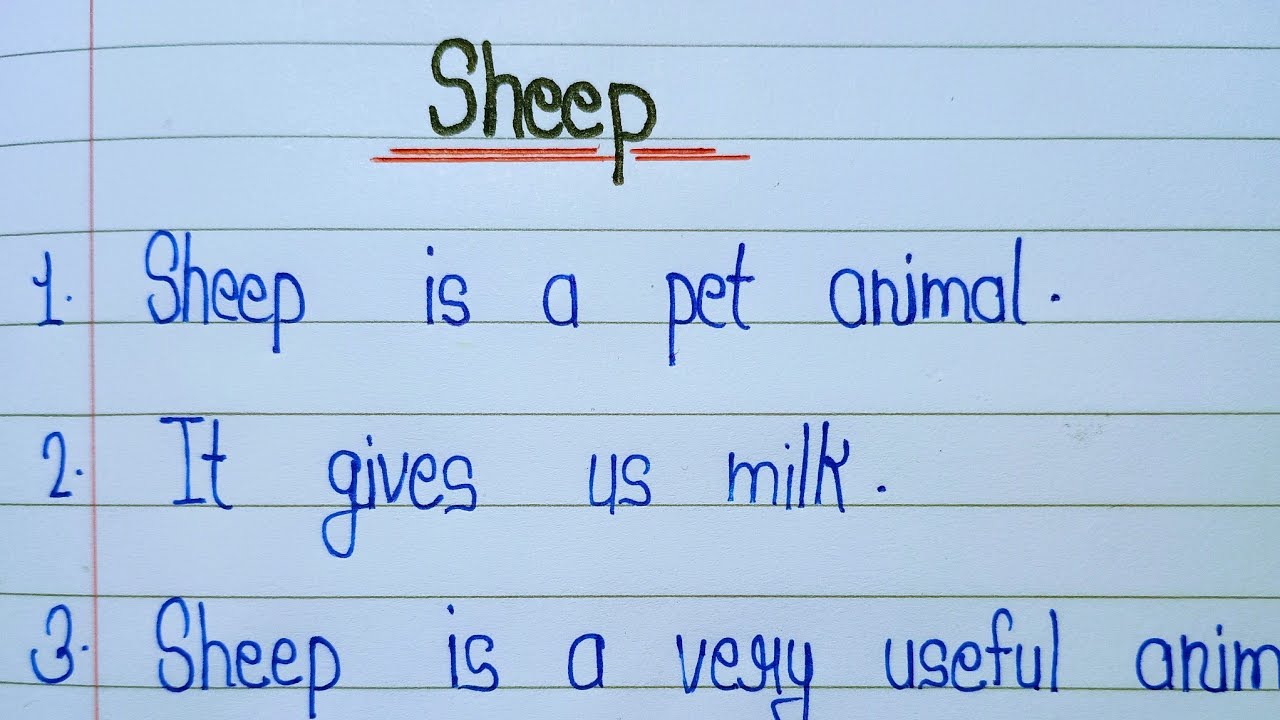 Sheep
1. Sheep is a pet animal.
2. It gives us milk.
3. Sheep is a very useful anim